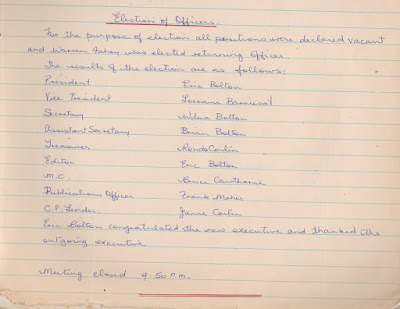 Election of Officers.
For the purpose of election all positions were declared vacant
and Warren Fahey was elected returning Officer.
The results of the election are as follows:
President Eric Bolton
Vice President Lorraine Barnicoat
Secretary Bolton
Assistant Secretary Brian Bolton
Treasurer Carlin
Editor Eric Bolton
M.C. Bruce Cawthorne
Publications Officer Frank Maher
C.P. Leader. Jamie Carlin
Eric Bolton congratulated the new executive and thanked the
outgoing executive
Meeting closed 9.50 P.M.